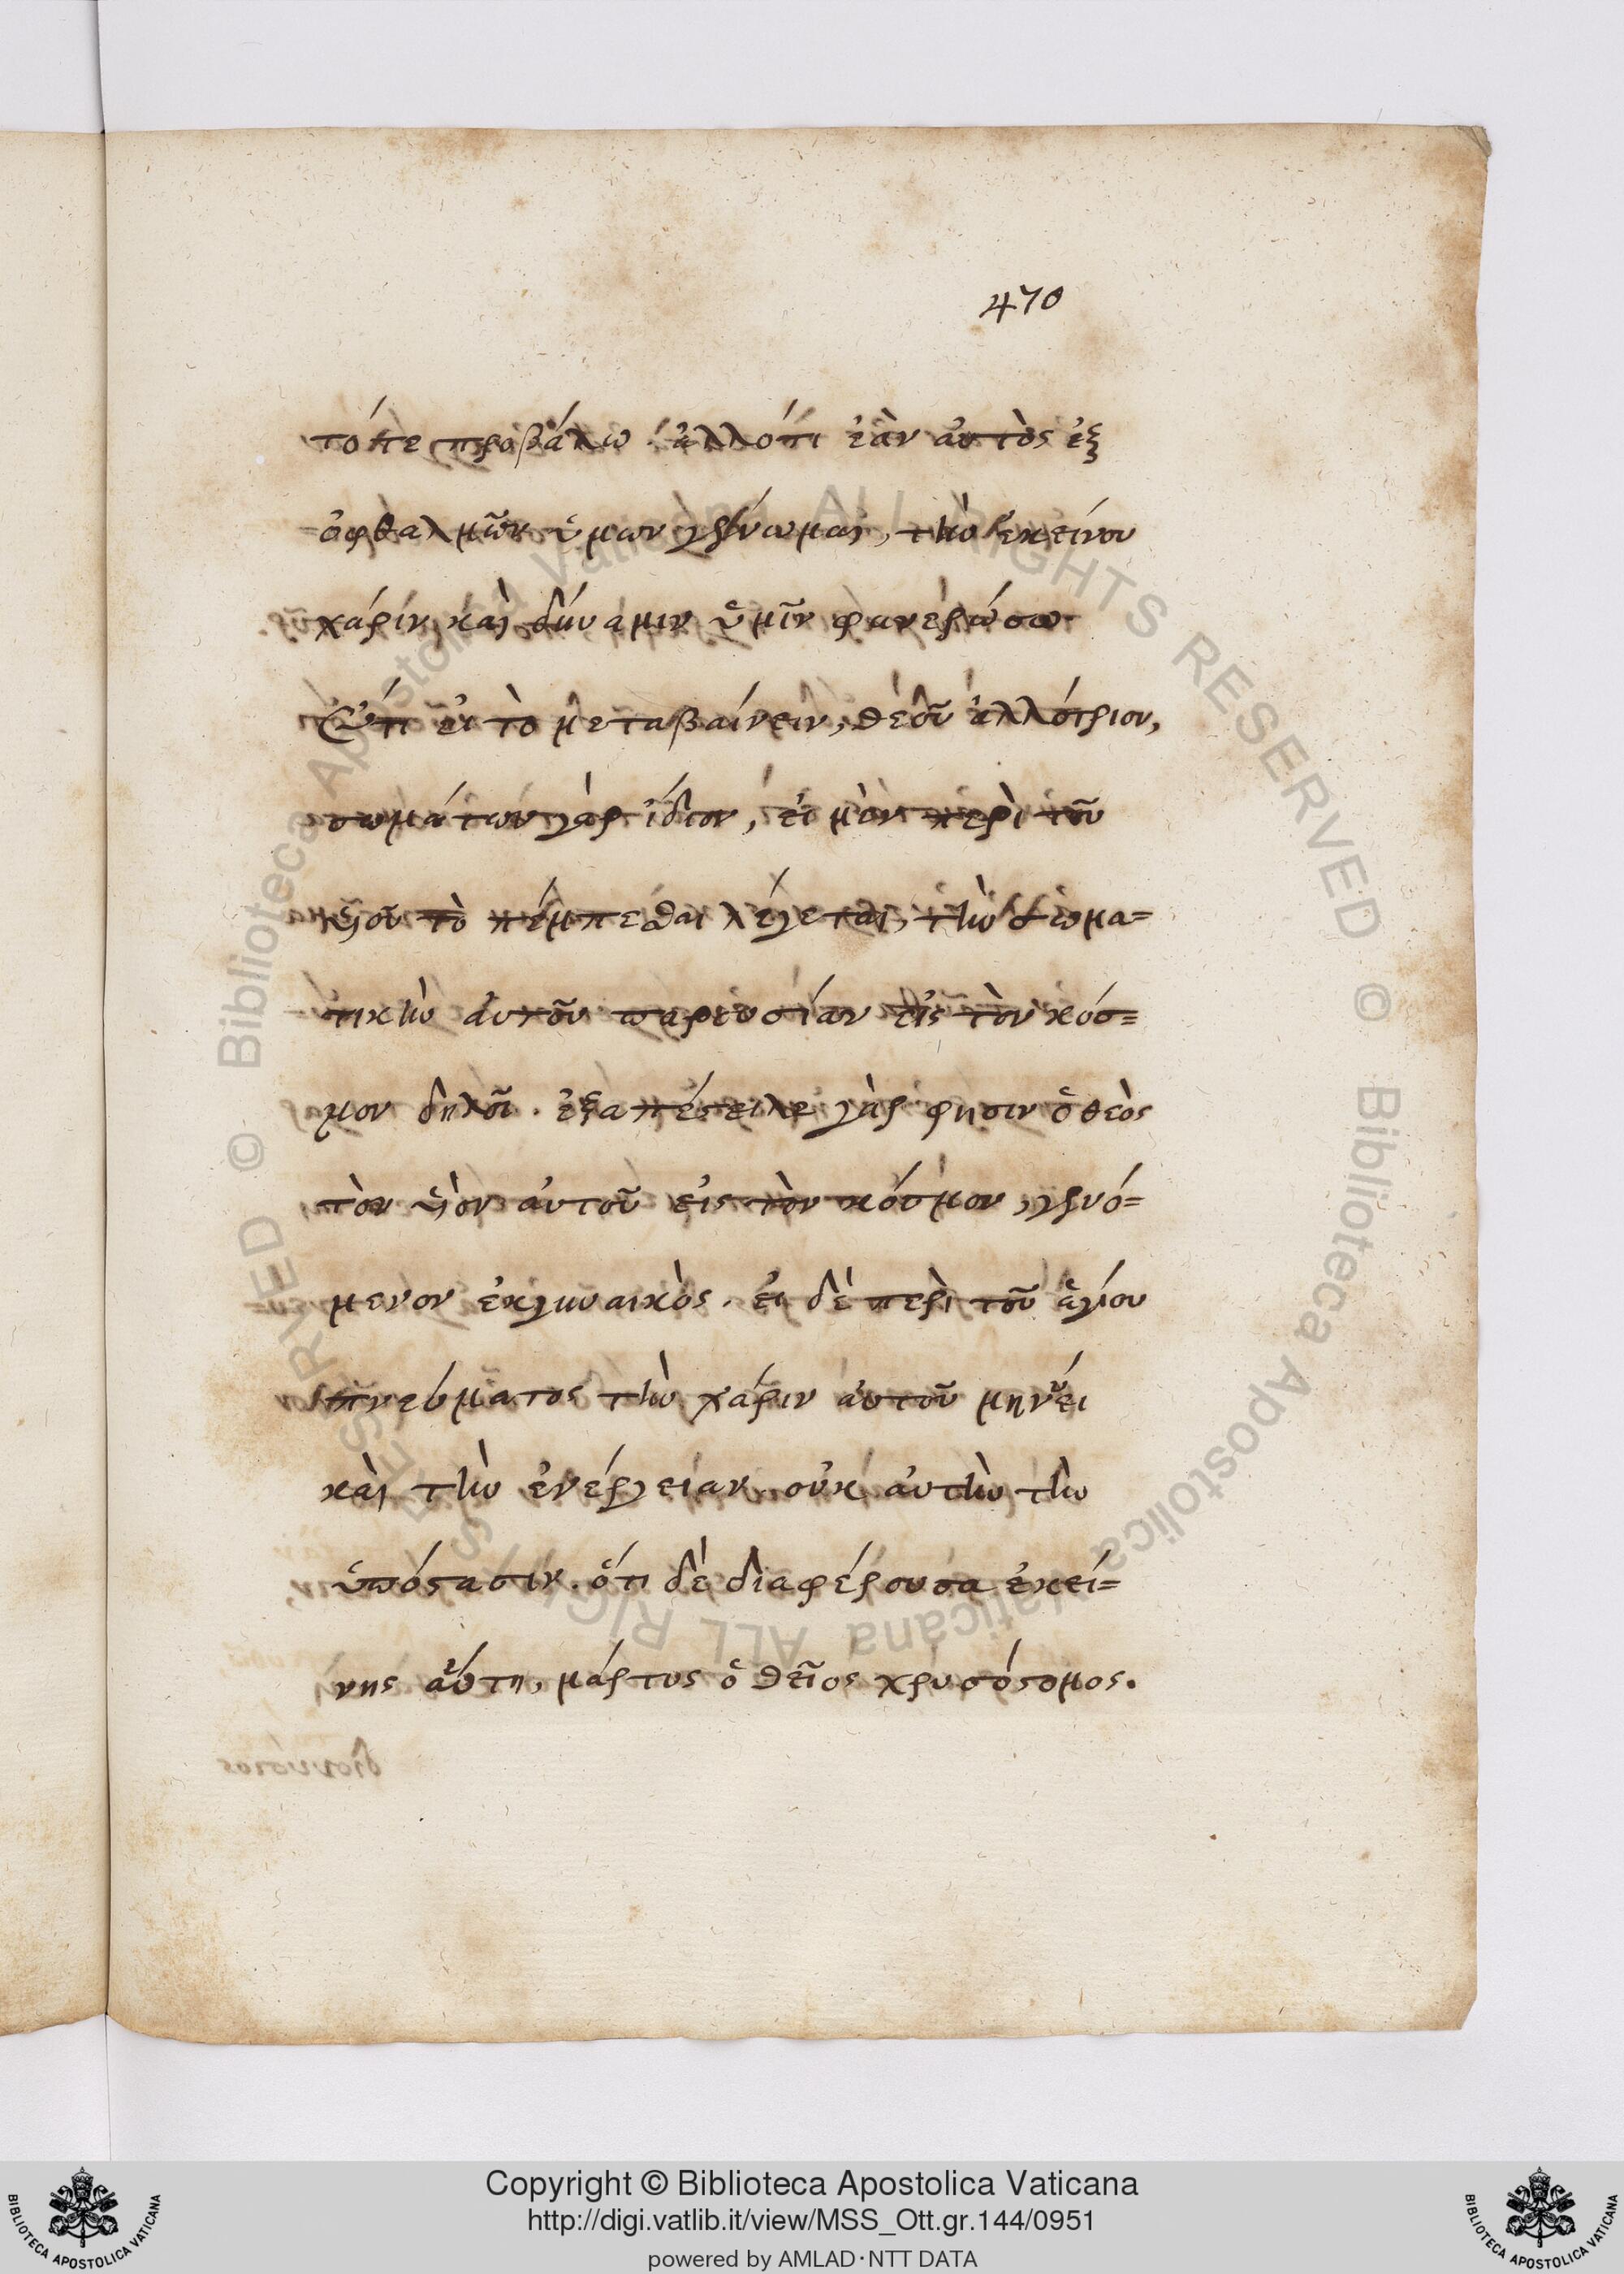 470
τότε προβάλω. ἀλλότι ἐὰν αὐτὸς ἐξ
ὀφθαλμῶν ὑμων γένωμαι, τὴν ἐκείνου
χάριν καὶ δύναμιν ὑμῖν φανερώσω
Ἔτι εἰ τὸ μεταβαίνειν, θεοῦ ἀλλότριον,
σωμάτων γὰρ ἴδιον, εἰ μὲν περὶ τοῦ
ὑιοῦ τὸ πέμπεσθαι λέγεται, τὴν σωμα=
τικὴν αὐτοῦ παρουσίαν εἰς τὸν κόσ=
μον δηλοῖ. ἐξαπέστειλε γὰρ φησιν ὁ θεὸς
τὸν ὑιὸν αὐτοῦ εἰς τὸν κόσμον, γενό=
μενον ἐκ γυναικὸς. εἰ δὲ περὶ τοῦ ἁγίου
πνεύματος τὴν χάριν αὐτοῦ μηνύει
καὶ τὴν ἐνέργειαν οὐκ αὐτὴν τὴν
ὑπόστασιν. ὅτι δὲ διαφέρουσα ἐκεί=
νης αὕτη, μάρτυς ὁ θεῖος χρυσόστομος.
Copyright © Biblioteca Apostolica Vaticana
http://digi.vatlib.it/view/MSS_Ott.gr.144/0951
powered by AMLAD·NTT DATA